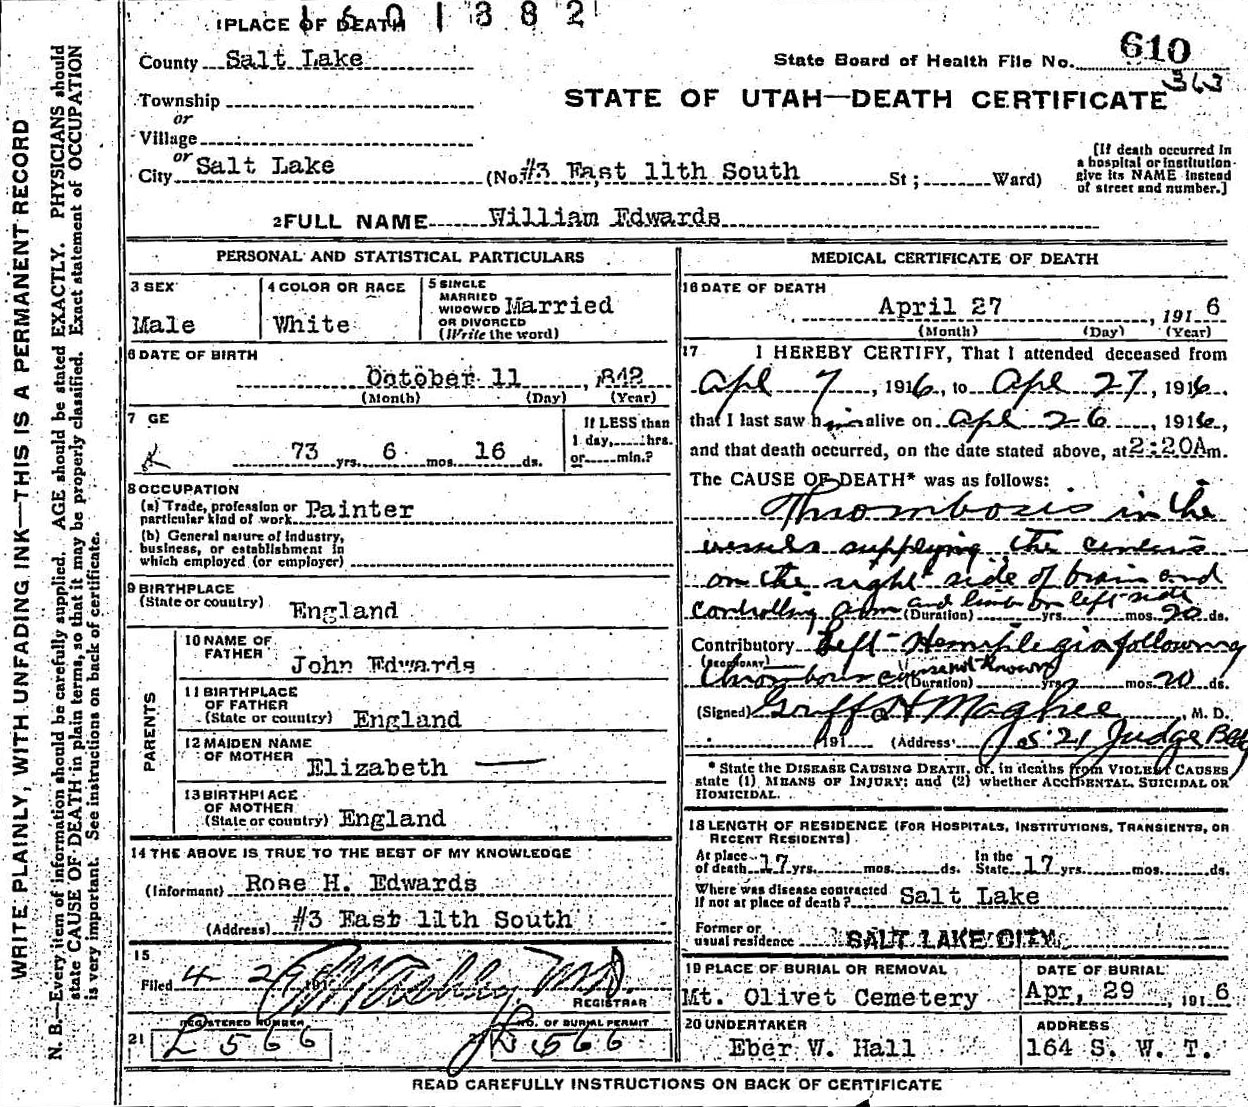 1601382
1 PLACE OF DEATH
County Salt Lake
State Board of Health File No. 610
363
Township
or
Village
or
City Salt Lake (No. #3 East 11th South St; Ward)
STATE OF UTAH—DEATH CERTIFICATE
[If death occurred in
a hospital or institution
give its NAME instead
of street and number.]
2 FULL NAME William Edwards
PERSONAL AND STATISTICAL PARTICULARS
3 SEX
Male
4 COLOR OR RACE
White
5 SINGLE
MARRIED
WIDOWED
OR DIVORCED
(Write the word)
Married
6 DATE OF BIRTH
October 11, 1842
(Month) (Day) (Year)
7 GE
73 yrs. 6 mos. 16 ds.
If LESS than
1 day, hrs.
or min.?
8 OCCUPATION
(a) Trade, profession or
particular kind of work Painter
(b) General nature of industry,
business, or establishment in
which employed (or employer)
9 BIRTHPLACE
(State or country) England
PARENTS
10 NAME OF
FATHER John Edwards
11 BIRTHPLACE
OF FATHER
(State or country) England
12 MAIDEN NAME
OF MOTHER Elizabeth —
13 BIRTHPLACE
OF MOTHER
(State or country) England
14 THE ABOVE IS TRUE TO THE BEST OF MY KNOWLEDGE
(Informant) Rose H. Edwards
(Address) #3 East 11th South
15
Filed 4 191 M.D.
REGISTRAR
21 REGISTERED NUMBER
566
NO. OF BURIAL PERMIT
566
MEDICAL CERTIFICATE OF DEATH
16 DATE OF DEATH
April 27, 1916
(Month) (Day) (Year)
17 I HEREBY CERTIFY, That I attended deceased from
Apl 7, 1916, to Apl 27, 1916.
that I last saw him alive on Apl 26, 1916,
and that death occurred, on the date stated above, at 2:20A m.
The CAUSE OF DEATH* was as follows:
Thrombosis in the
vessels supplying the centers
on the right side of brain and
controlling arm and limb on left side
(Duration) yrs. mos. 20 ds.
Contributory Left Hemiplegia following
(SECONDARY)
thrombus cause not known
(Duration) yrs. mos. 20 ds.
(Signed) Maghee, M. D.
191 (Address) 521 Judge Bldg
* State the DISEASE CAUSING DEATH, or, in deaths from VIOLENT CAUSES,
state (1) MEANS OF INJURY; and (2) whether ACCIDENTAL, SUICIDAL OR
HOMICIDAL.
18 LENGTH OF RESIDENCE (FOR HOSPITALS, INSTITUTIONS, TRANSIENTS, OR
RECENT RESIDENTS)
At place
of death 17 yrs. mos. ds. In the
State 17 yrs. mos. ds.
Where was disease contracted
If not at place of death? Salt Lake
Former or
usual residence SALT LAKE CITY
19 PLACE OF BURIAL OR REMOVAL
Mt. Olivet Cemetery
DATE OF BURIAL
Apr, 29, 1916
20 UNDERTAKER
Eber W. Hall
ADDRESS
164 S. W. T.
READ CAREFULLY INSTRUCTIONS ON BACK OF CERTIFICATE
WRITE PLAINLY, WITH UNFADING INK—THIS IS A PERMANENT RECORD
N. B.—Every item of information should be carefully supplied. AGE should be stated EXACTLY. PHYSICIANS should
state CAUSE OF DEATH in plain terms, so that it may be properly classified. Exact statement of OCCUPATION
is very important. See instructions on back of certificate.